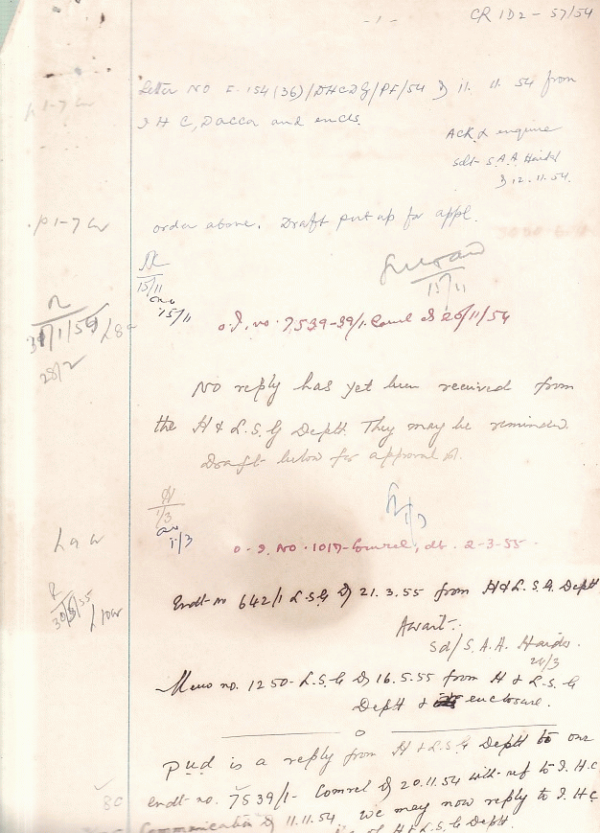 -1-
CR 1D2-57/54
Letter NO F. 154(36)/DHCDQ/PF/54 D 11. 11. 54 from
I H C, Dacca and encls.
Ack & enquire
Sd/- S.A.A Haider
D 12.11.54.
p 1-7 C
.p 1-7 C
order above. Draft put up for appl.
15/11
15/11
15/11
31/1/55
28/2
o.I. no. 7539-39/1. Comrl dt 20/11/54
No reply has yet been received from
the H & L.S.G Deptt. They may be reminded
Draft below for approval pl.
1/3
1/3
o.I. No. 1017-Comrel, dt. 2-3-55.
Endt no 642/1 L.S.G D) 21.3.55 from H & L.S.G. Deptt
Await.
Sd/ S.A.A. Haider.
24/3
Memo no. 1250-L.S.G D 16.5.55 from H & L.S.G
Deptt & enclosure.
P.u.d is a reply from H & L.S.G Deptt to our
endt no. 7539/1- Comrel D 20.11.54 with ref to I.H.C
Communication D 11.11.54. We may now reply to I.H.C
of H & L.S.G Deptt.